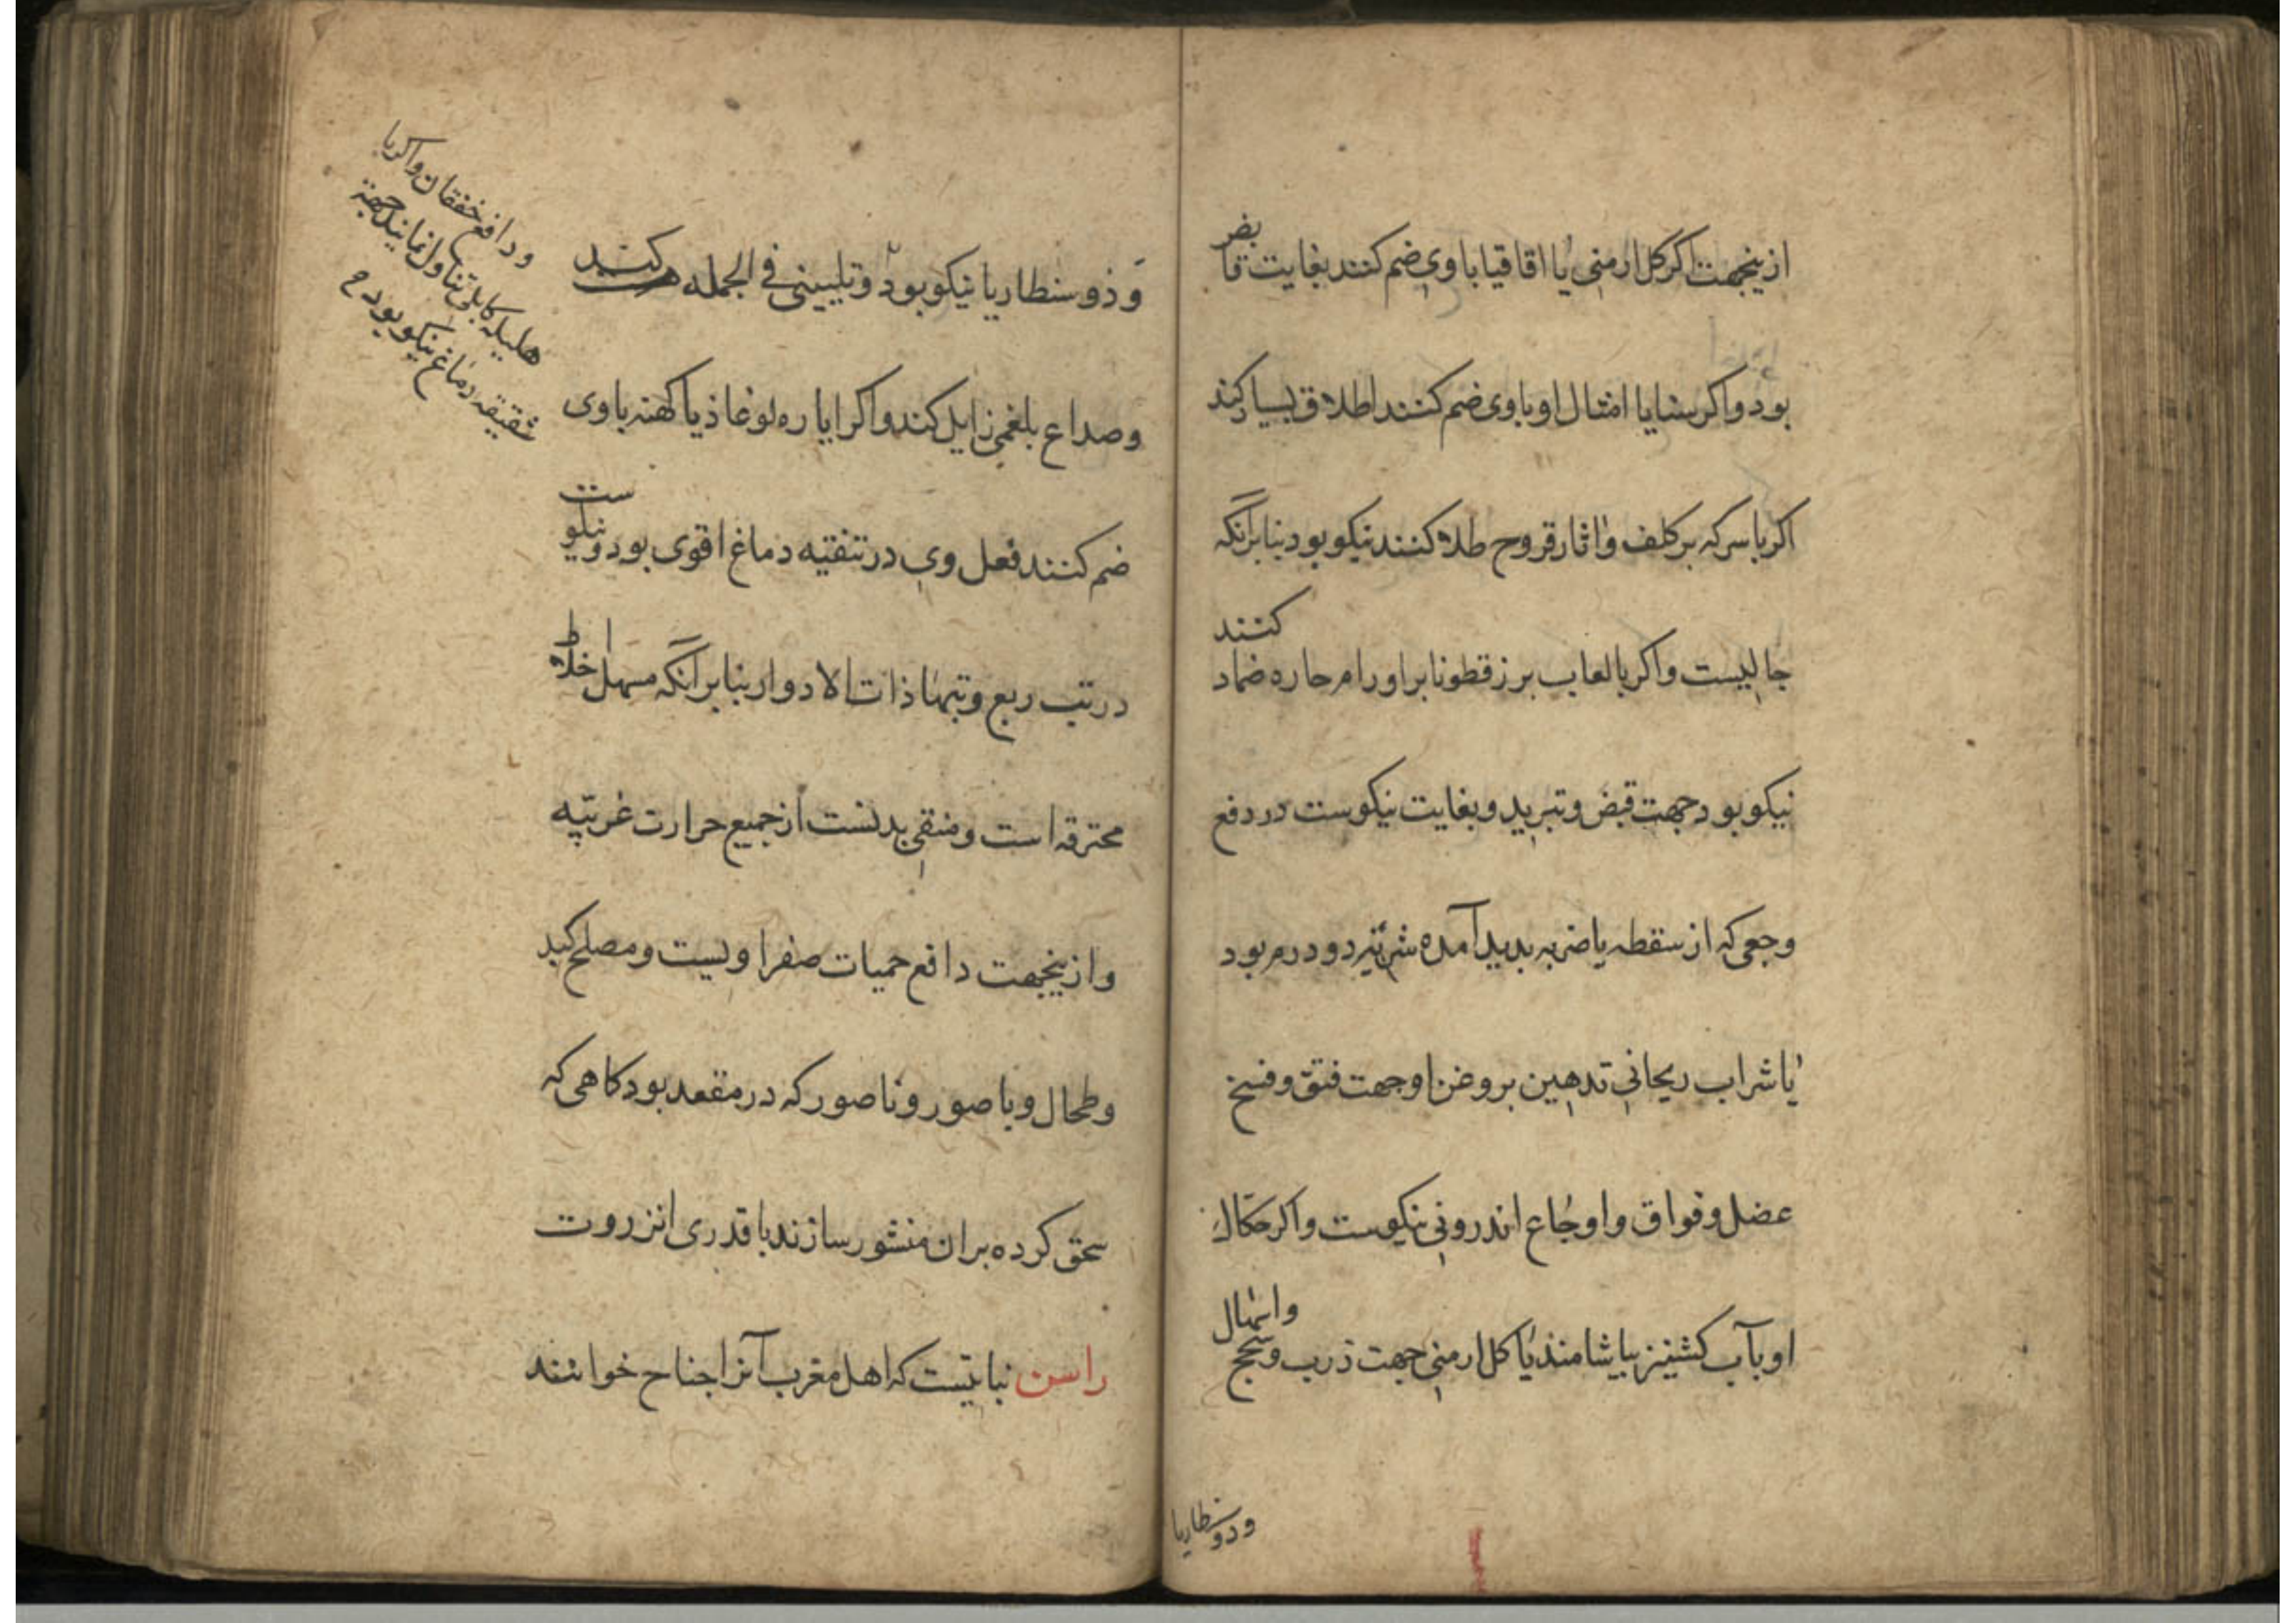 ازینجهت اکر کل ارمنی یا اقاقیا باوی ضم کنند بغایت قابض
بود واکر سنایا امثال او باوی ضم کنند اطلاق بسیار کند
اکر با سرکه بر کلف واثار قروح طلا کنند نیکو بود بنابرآنکه
جالیست واکر بالعاب برزقطونا بر اورام حاره ضماد کنند
نیکو بود جهت قبض وتبرید وبغایت نیکوست در دفع
وجعی که از سقطه یا ضربه بدید آمده شربتی دو درم بود
یا شراب ریحانی تدهین بروغن او جهت فتق وفسخ
عضل وفواق واوجاع اندرونی نیکوست واکر حکاک
او بآب کشنیز بیاشامند یا کل ارمنی جهت ذرب وسحج واسهال
وذوسنطاریا
وذوسنطاریا نیکو بود وتلیینی فی الجمله کند
وصداع بلغمی زایل کند واکر ایاره لوغاذیا کهنه باوی
ضم کنند فعل وی در تنقیه دماغ اقوی بود ونیکوست
در تب ربع وتبهاء ذات الادوار بنابر آنکه مسهل اخلاط
محترقه است ومنقی بدنست از جمیع حرارت غریبه
وازینجهت دافع حمیات صفراویست ومصلح کبد
وطحال وباصور وناصور که در مقعد بود کاهی که
سحق کرده بران منثور سازند با قدری انزروت
راسن نباتیست که اهل مغرب آنرا جناح خوانند
ودافع خفقان واکر با
هلیله کابلی تناول نمایند جهة
شقیقه دماغ نیکو بود